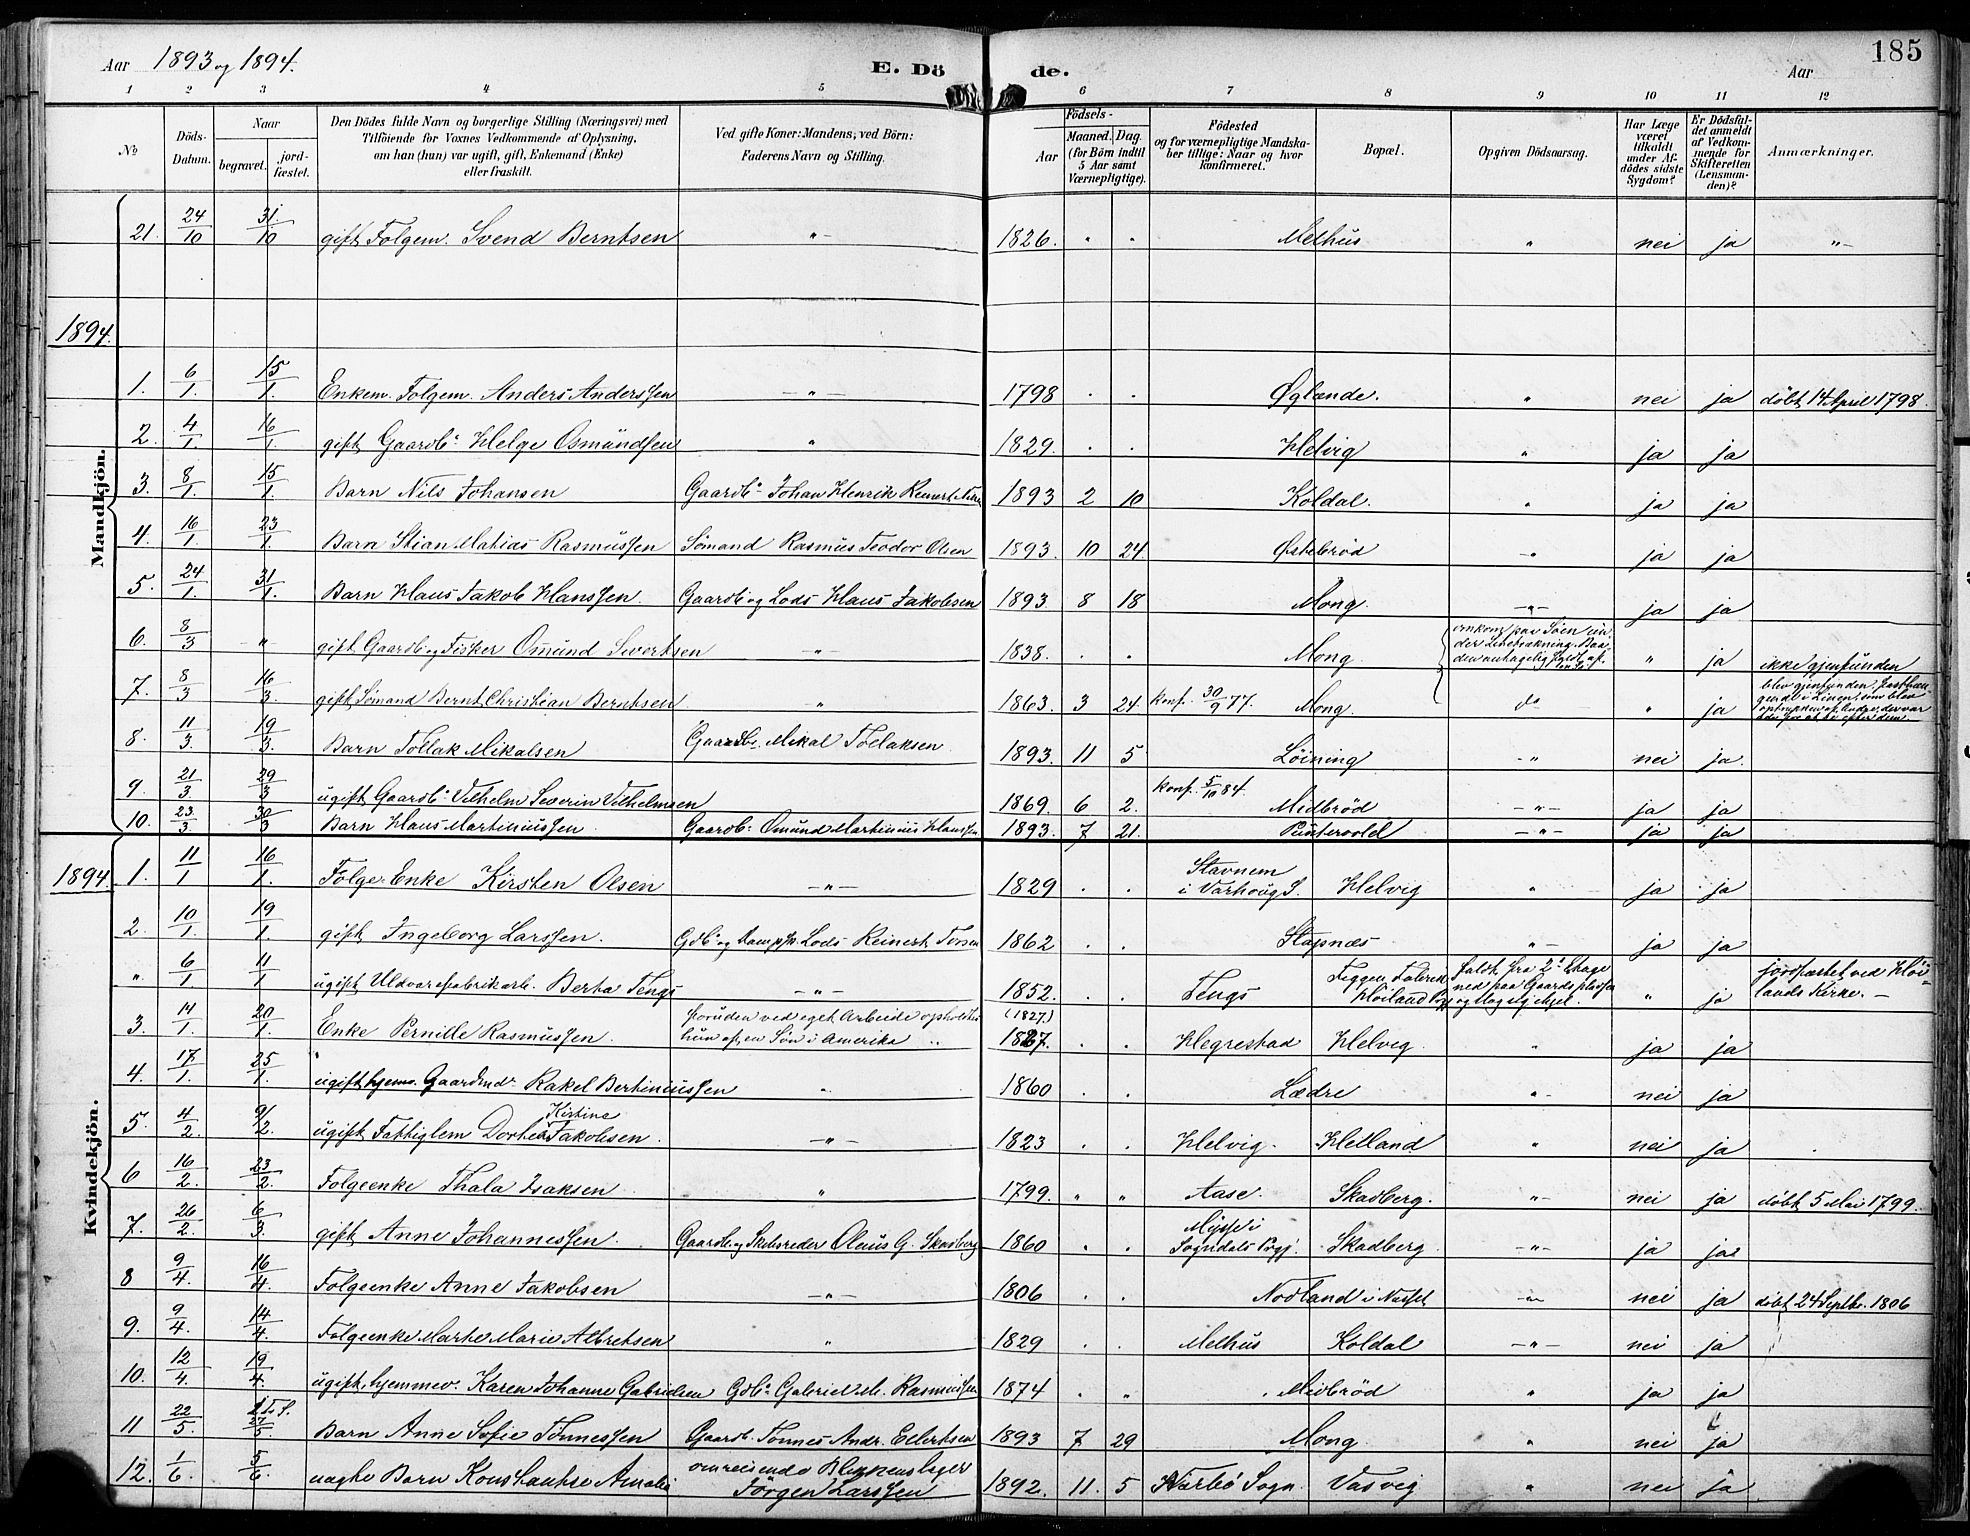 185
Aar 1893 og 1894.
E. Dö de.
Aar
1 2 3 4 5 6 7 8 9 10 11 12
No
Döds-Datum.
Naar
begravet.
jord-fæstet.
Den Dödes fulde Navn og borgerlige Stilling (Næringsvei) med
Tilföiende for Voxnes Vedkommende af Oplysning,
om han (hun) var ugift, gift, Enkemand (Enke)
eller fraskilt.
Ved gifte Koner: Mandens; ved Börn:
Faderens Navn og Stilling.
Födsels-
Aar
Maaned. Dag.
(for Börn indtil
5 Aar samt
Værnepligtige).
Födested
og for værnepligtige Mandska-
ber tillige: Naar og hvor
konfirmeret.
Bopæl.
Opgiven Dödsaarsag.
Har Læge
været
tilkaldt
under Af-
dödes sidste
Sygdom?
Er Dödsfal-
det anmeldt
af Vedkom-
mende for
Skifteretten
(Lensman-
den)?
Anmærkninger.
Mandkjön.
21. 24/10 31/10 gift Folgem. Svend Berntsen " 1826. " " Melhus " nei ja "
1894.
1. 6/1. 15/1. Enkem. Folgem. Anders Anderssen " 1798 . . Øglænde. nei ja döbt 14 April 1798.
2. 4/1. 16/1. gift Gaardb. Helge Osmundsen " 1829. . . Helvig " ja ja
3. 8/1. 15/1. Barn Nils Johansen Gaardb. Johan Henrik Reinert 1893 2 10 Koldal. " ja ja
4. 16/1. 23/1. Barn Stian Mathias Rasmussen Sömand Rasmus Teodor Olsen 1893. 10 24 Østebröd " ja ja
5. 24/1. 31/1. Barn Hans Jakob Hanssen. Gaardb. og Lods Hans Jakobsen 1893. 8 18 Mong. " ja ja
6. 8/3 " gift Gaardb. og Fisker Omund Sivertsen " 1838. . . Mong. omkom paa Söen un-
der " ja ikke gjenfunden
7. 8/3 16/3. gift Sömand Bernt Christian Berntsen " 1863. 3 24 konf. 30/9 77. Mong. do " ja blev gjenfunden
8. 11/3. 19/3. Barn Tollak Mikalsen Gaardb. Mikal Tollaksen 1893. 11 5 Löining " nei ja.
9. 21/3. 29/3 ugift Gaardb. Vilhelm Severin Vilhelmsen 1869. 6 2. konf. 5/10 84. Midbröd " ja ja
10. 23/3. 30/3 Barn Hans Martiniussen Gaardb. Omund Martinius Hanssen 1893. 7 21. " ja ja
Kvindekjön.
1894.
1. 11/1 16/1. Folge-Enke Kirsten Olsen " 1829 . . Stavnem
i Varhoug S. Helvig " ja ja
2. 10/1. 19/1. gift Ingeborg Larssen. Lods Reinert 1862 . . Stapnæs " ja ja
" 6/1 11/1 ugift Uldvarefabrikarb. Berta Tengs " 1852. . . Tengs Figgen Fabrik
Höiland faldt fra 2. Etage
ned paa Gaardspladsen
og slog sig ihjel. " ja jordfæstet ved Höi-
lands Kirke. —
3. 14/1 20/1. Enke Pernille Rasmussen. foruden ved eget Arbeide opholdtes
hun af en Sön i Amerika (1827.)
1827. . . Hegrestad Helvig. " ja ja
4. 17/1. 25/1. ugift hjemv. Gaardmdr. Rakel Bertiniussen " 1860 . . Lædre " nei ja
5. 4/2. 9/2. ugift Fattiglem Dorthea Kistine Jakobsen. " 1823 . . Helvig. Helland " nei ja
6 16/2. 23/2. Folgeenke Thala Isaksen " 1799. " " Aase. Skadberg. " nei ja döbt 5 Mai 1799.
7. 26/2. 6/3. gift Anne Johannessen. Gaardb. og Skibsreder Olaus G. Skadberg 1860 . . Mysse i
Sogndals Prgj. Skadberg. " ja ja
8 9/4. 16/4. Folgeenke Anne Jakobsen " 1806 . . Nodland i " nei ja döbt 24 Septbr. 1806
9. 9/4. 14/4. Folgeenke Marte Marie Albretsen " 1829 . . Melhus Koldal " nei ja
10. 12/4. 19/4. ugift hjemmev. Karen Johanne Gabrielsen Gdb. Gabriel M. Rasmussen 1874 . " Midbröd " ja ja
11 22/5. 27/5 Barn Anne Sofie Tönnessen Gaardb. Tönnes Andr. Eilertsen 1893 7 29 Mong " nei ja
12. 1/6. 5/6. uægte Barn Konstantse Amalie omreisende Blikkenslager
Jörgen Larssen 1892. 11. 5 Nærbö Sogn. Vasvig " nei ja